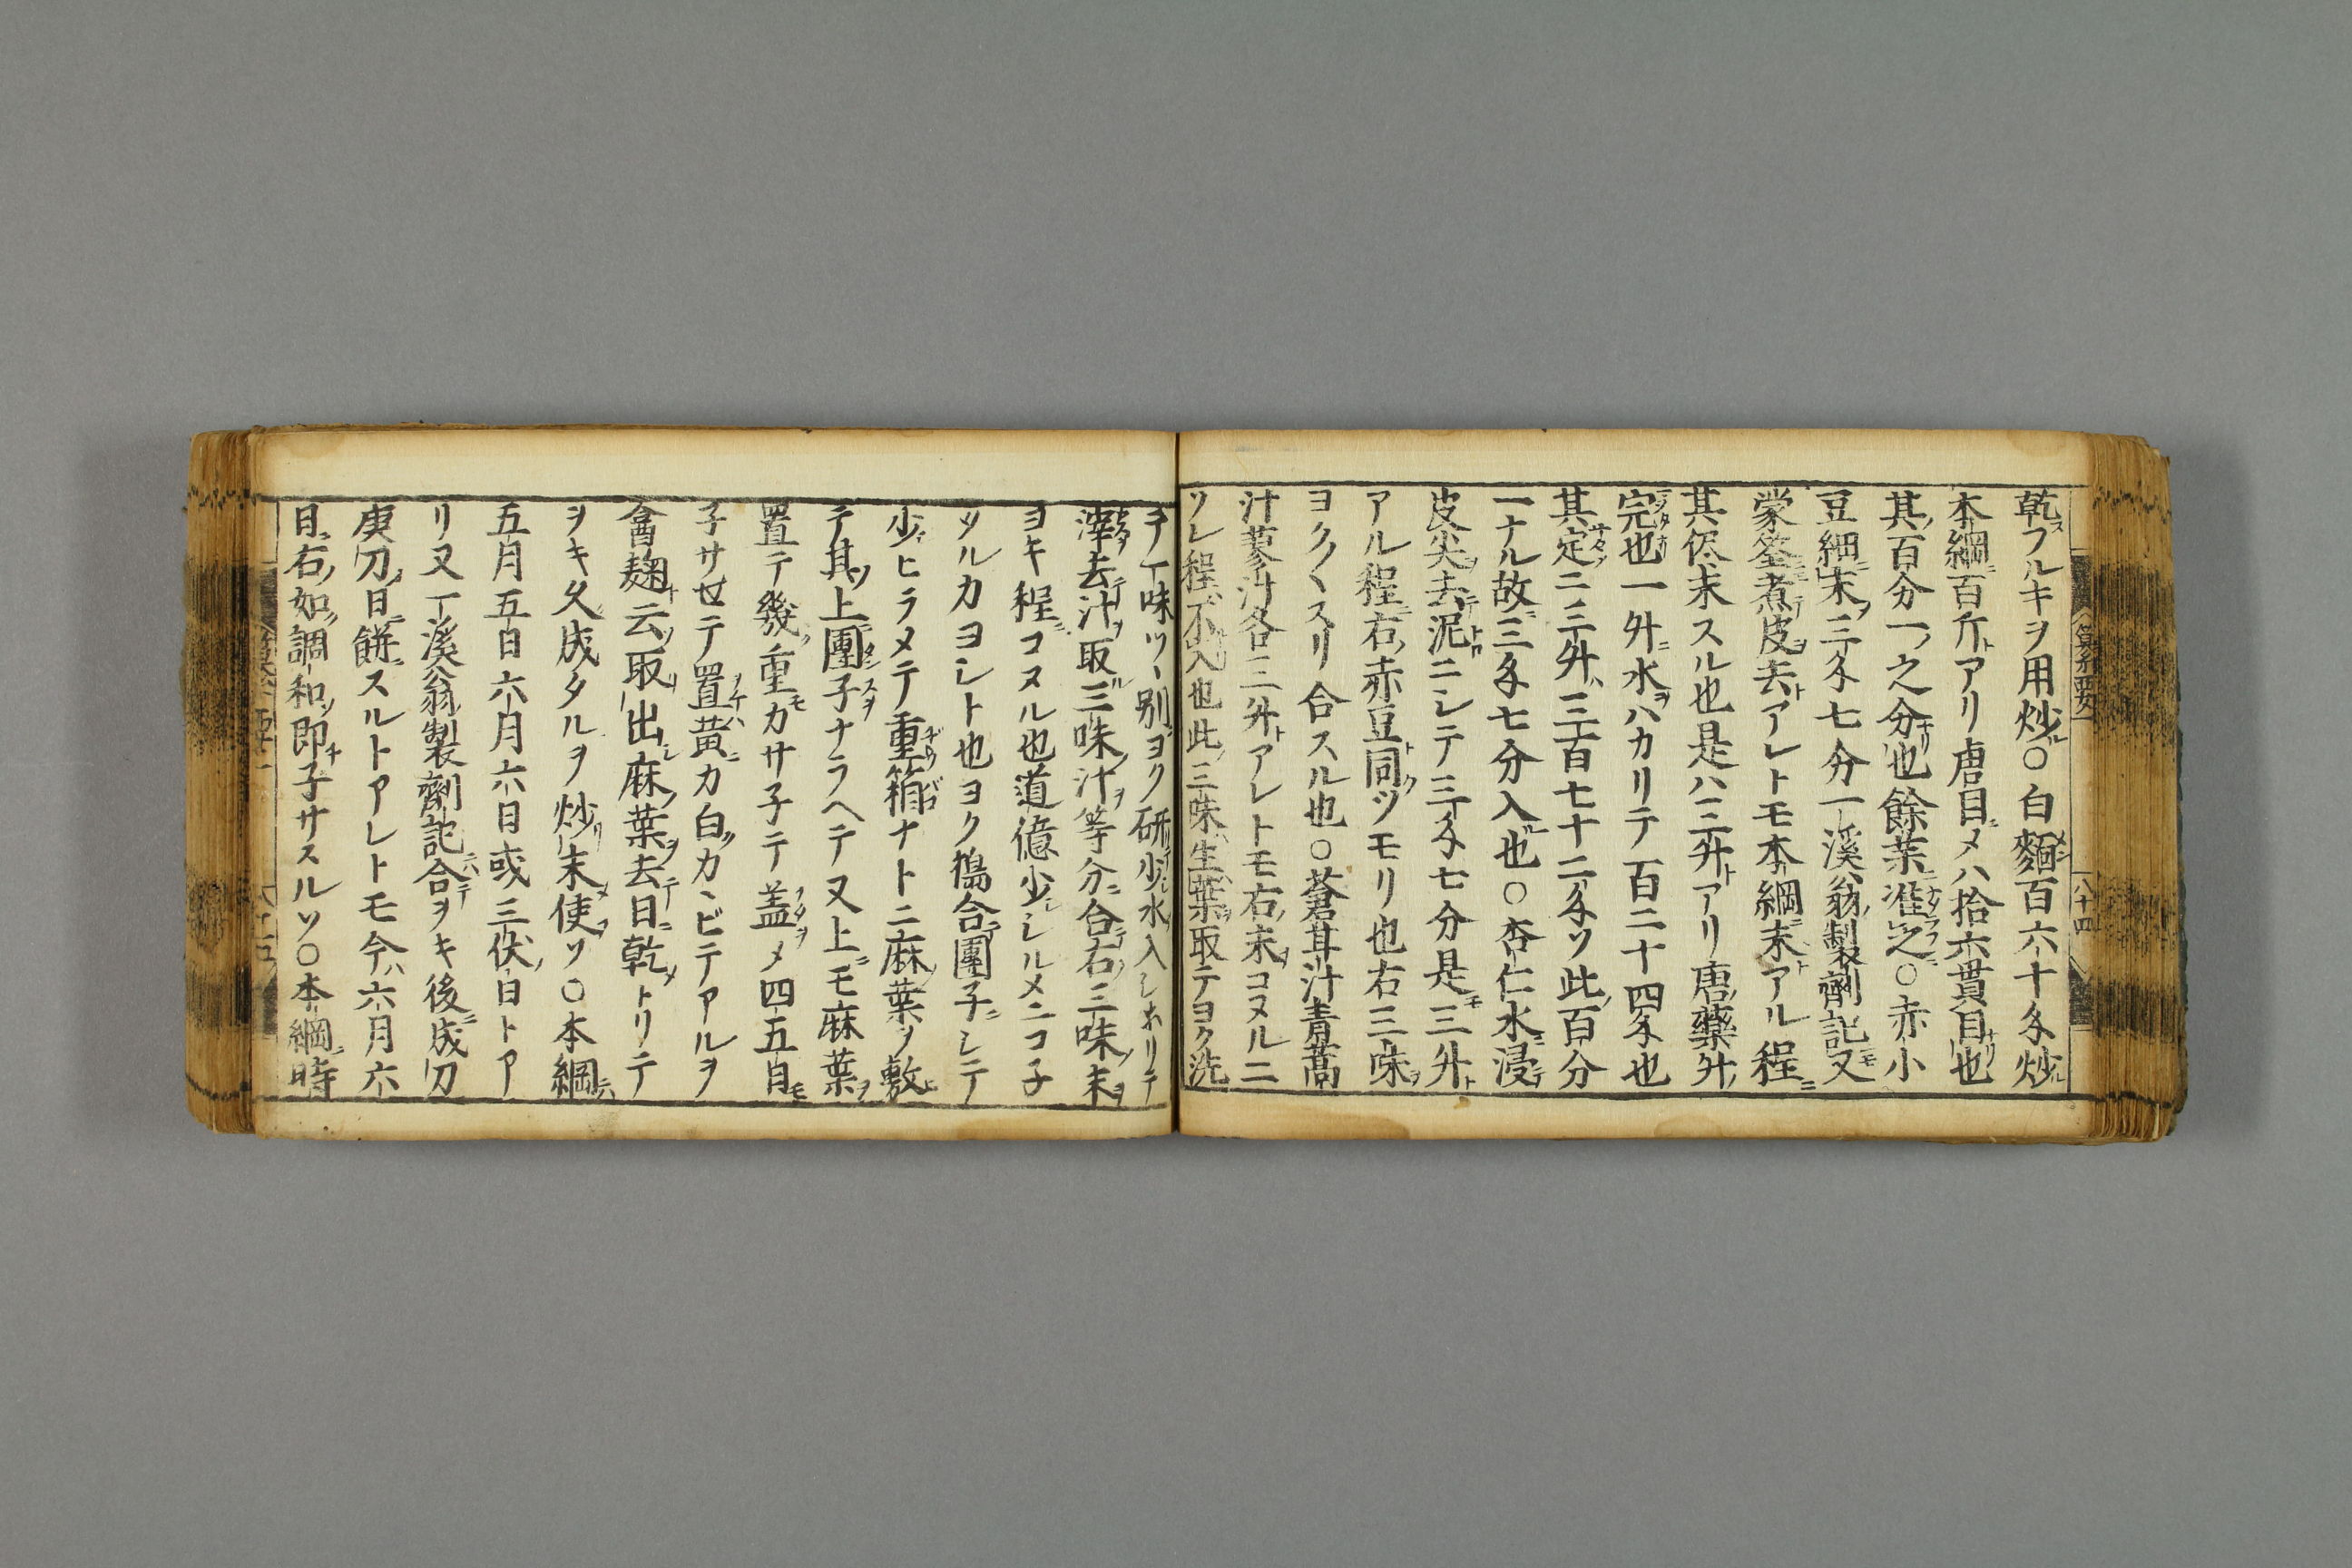 乾フルキヲ用炒○白麵百六十匁炒
本綱百斤トアリ唐目〆ハ拾六貫目也
其百分一之分也餘藥准之○赤小
豆細末三匁七分一溪翁製劑記又
蒙筌煮皮去トアレトモ本綱末トアル程
其侭末スル也是ハ三升トアリ唐藥升
完也一升水ヲハカリテ百二十四匁也
其定ニ三升三百七十二匁ソ此百分
一ナル故三匁七分入也○杏仁水浸
皮尖去泥ニシテ三匁七分是三升ト
アル程右赤豆同ツモリ也右三味
ヨク〱スリ合スル也○蒼耳汁青蒿
汁蓼汁各三升トアレトモ右末コヌルニ
ソレ程不入也此三味生葉取テヨク洗
テ一味ツヽ別ヨク研少水入シホリテ
滓去汁取三味汁等分合右三味末ヲ
ヨキ程コヌル也道億少シシルメニコ子
ツルカヨシト也ヨク搗合團子シテ
少ヒラメテ重箱ナトニ麻葉ヲ敷
テ其上團子ナラヘテ又上モ麻葉ヲ
置テ幾重モカサ子テ盖〆四五日モ
子サセテ置黄カ白カヽビテアルヲ
盦麹云取出麻葉去日乾トリテ
ヲキ久成タルヲ炒末使ソ○本綱
五月五日六月六日或三伏日トア
リ又一溪翁製劑記合ヲキ後成刀
庚刀日餅スルトアレトモ今ハ六月六
日右如調和即子サスルソ○本綱時
八十四